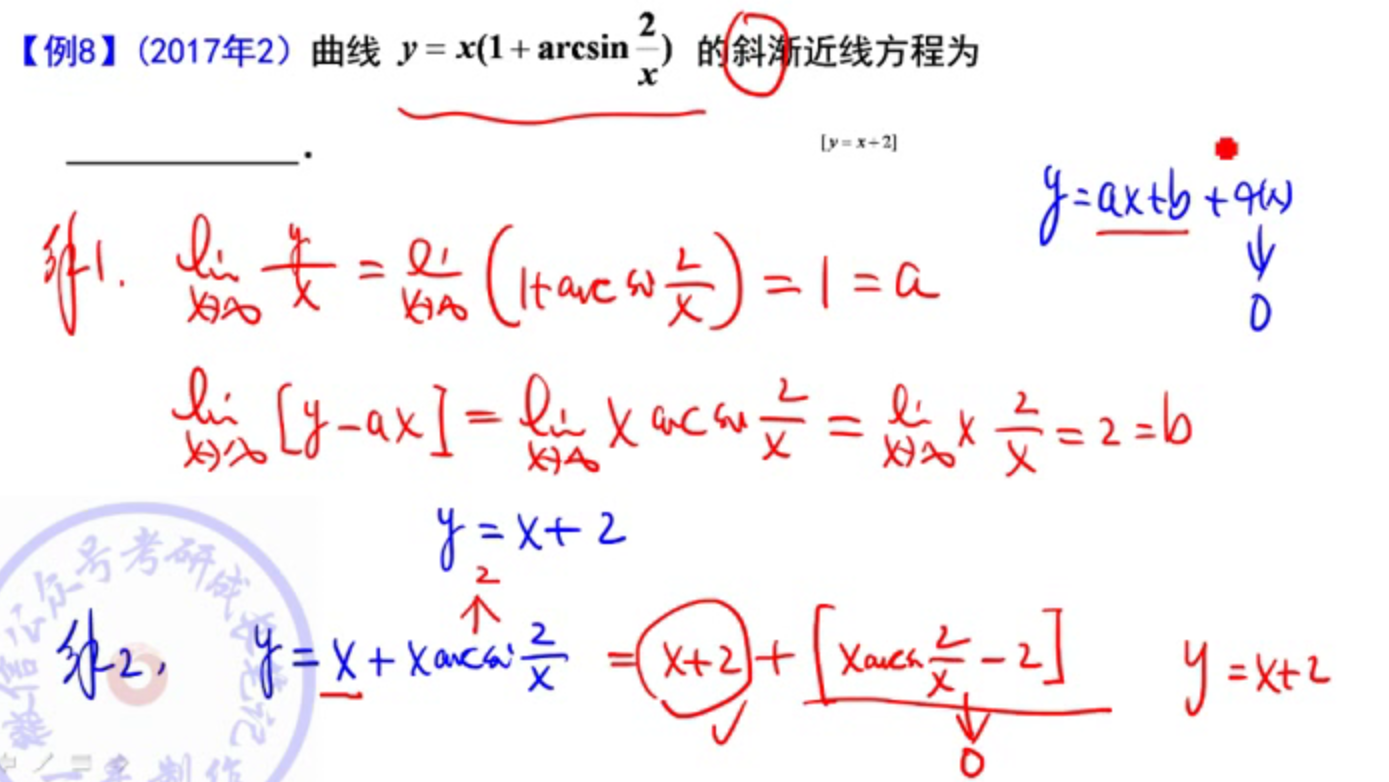 【例8】(2017年2) 曲线 y = x(1 + arcsin 2/x) 的斜渐近线方程为
____________.
[y = x + 2]
y = ax+b + α(x)
↓
0
解1. lim x→∞ y/x = lim x→∞ (1+arcsin 2/x) = 1 = a
lim x→∞ [y-ax] = lim x→∞ x arcsin 2/x = lim x→∞ x 2/x = 2 = b
y = x+2
2
↑
解2. y = x + x arcsin 2/x = x+2 + [x arcsin 2/x - 2] y = x+2
✓ ↓
0
号考研